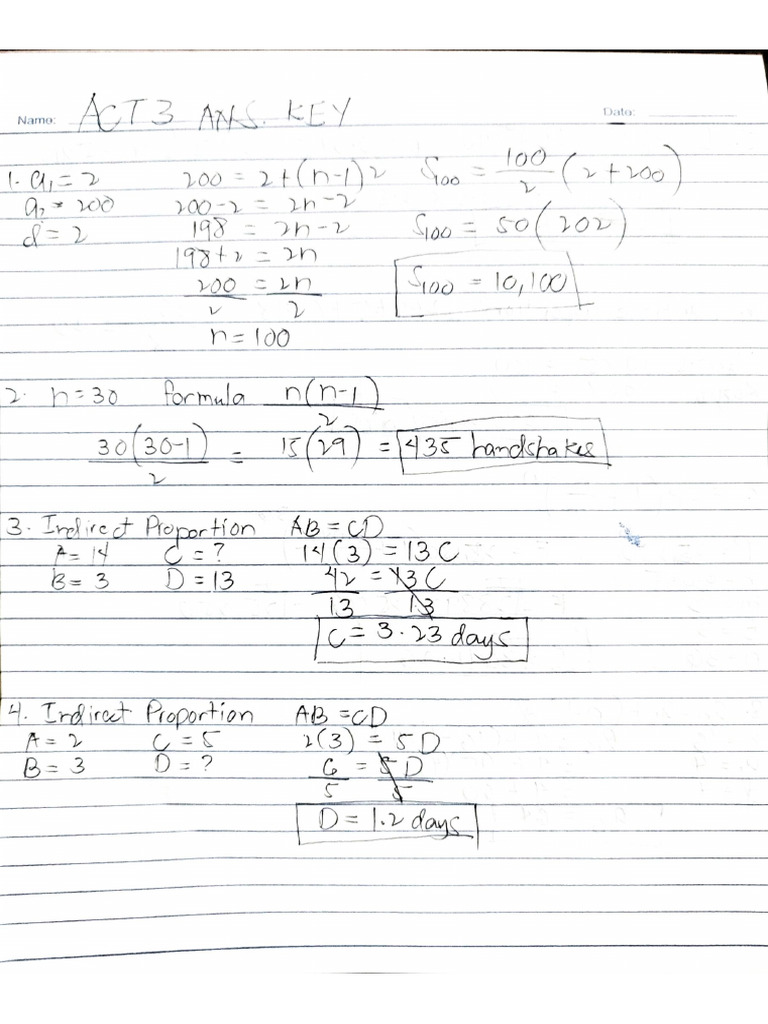 Name: ACT 3 ANS. KEY Date:
1. a₁ = 2 200 = 2+(n-1)2 S₁₀₀ = 100/2 (2+200)
a₂ = 200 200-2 = 2n-2
d = 2 198 = 2n-2 S₁₀₀ = 50(202)
198+2 = 2n
200/2 = 2n/2 S₁₀₀ = 10,100
n = 100
2. n = 30 formula n(n-1)/2
30(30-1)/2 = 15(29) = 435 handshakes
3. Indirect Proportion AB = CD
A = 14 C = ? 14(3) = 13C
B = 3 D = 13 42/13 = 13C/13
C = 3.23 days
4. Indirect Proportion AB = CD
A = 2 C = 5 2(3) = 5D
B = 3 D = ? 6/5 = 5D/5
D = 1.2 days